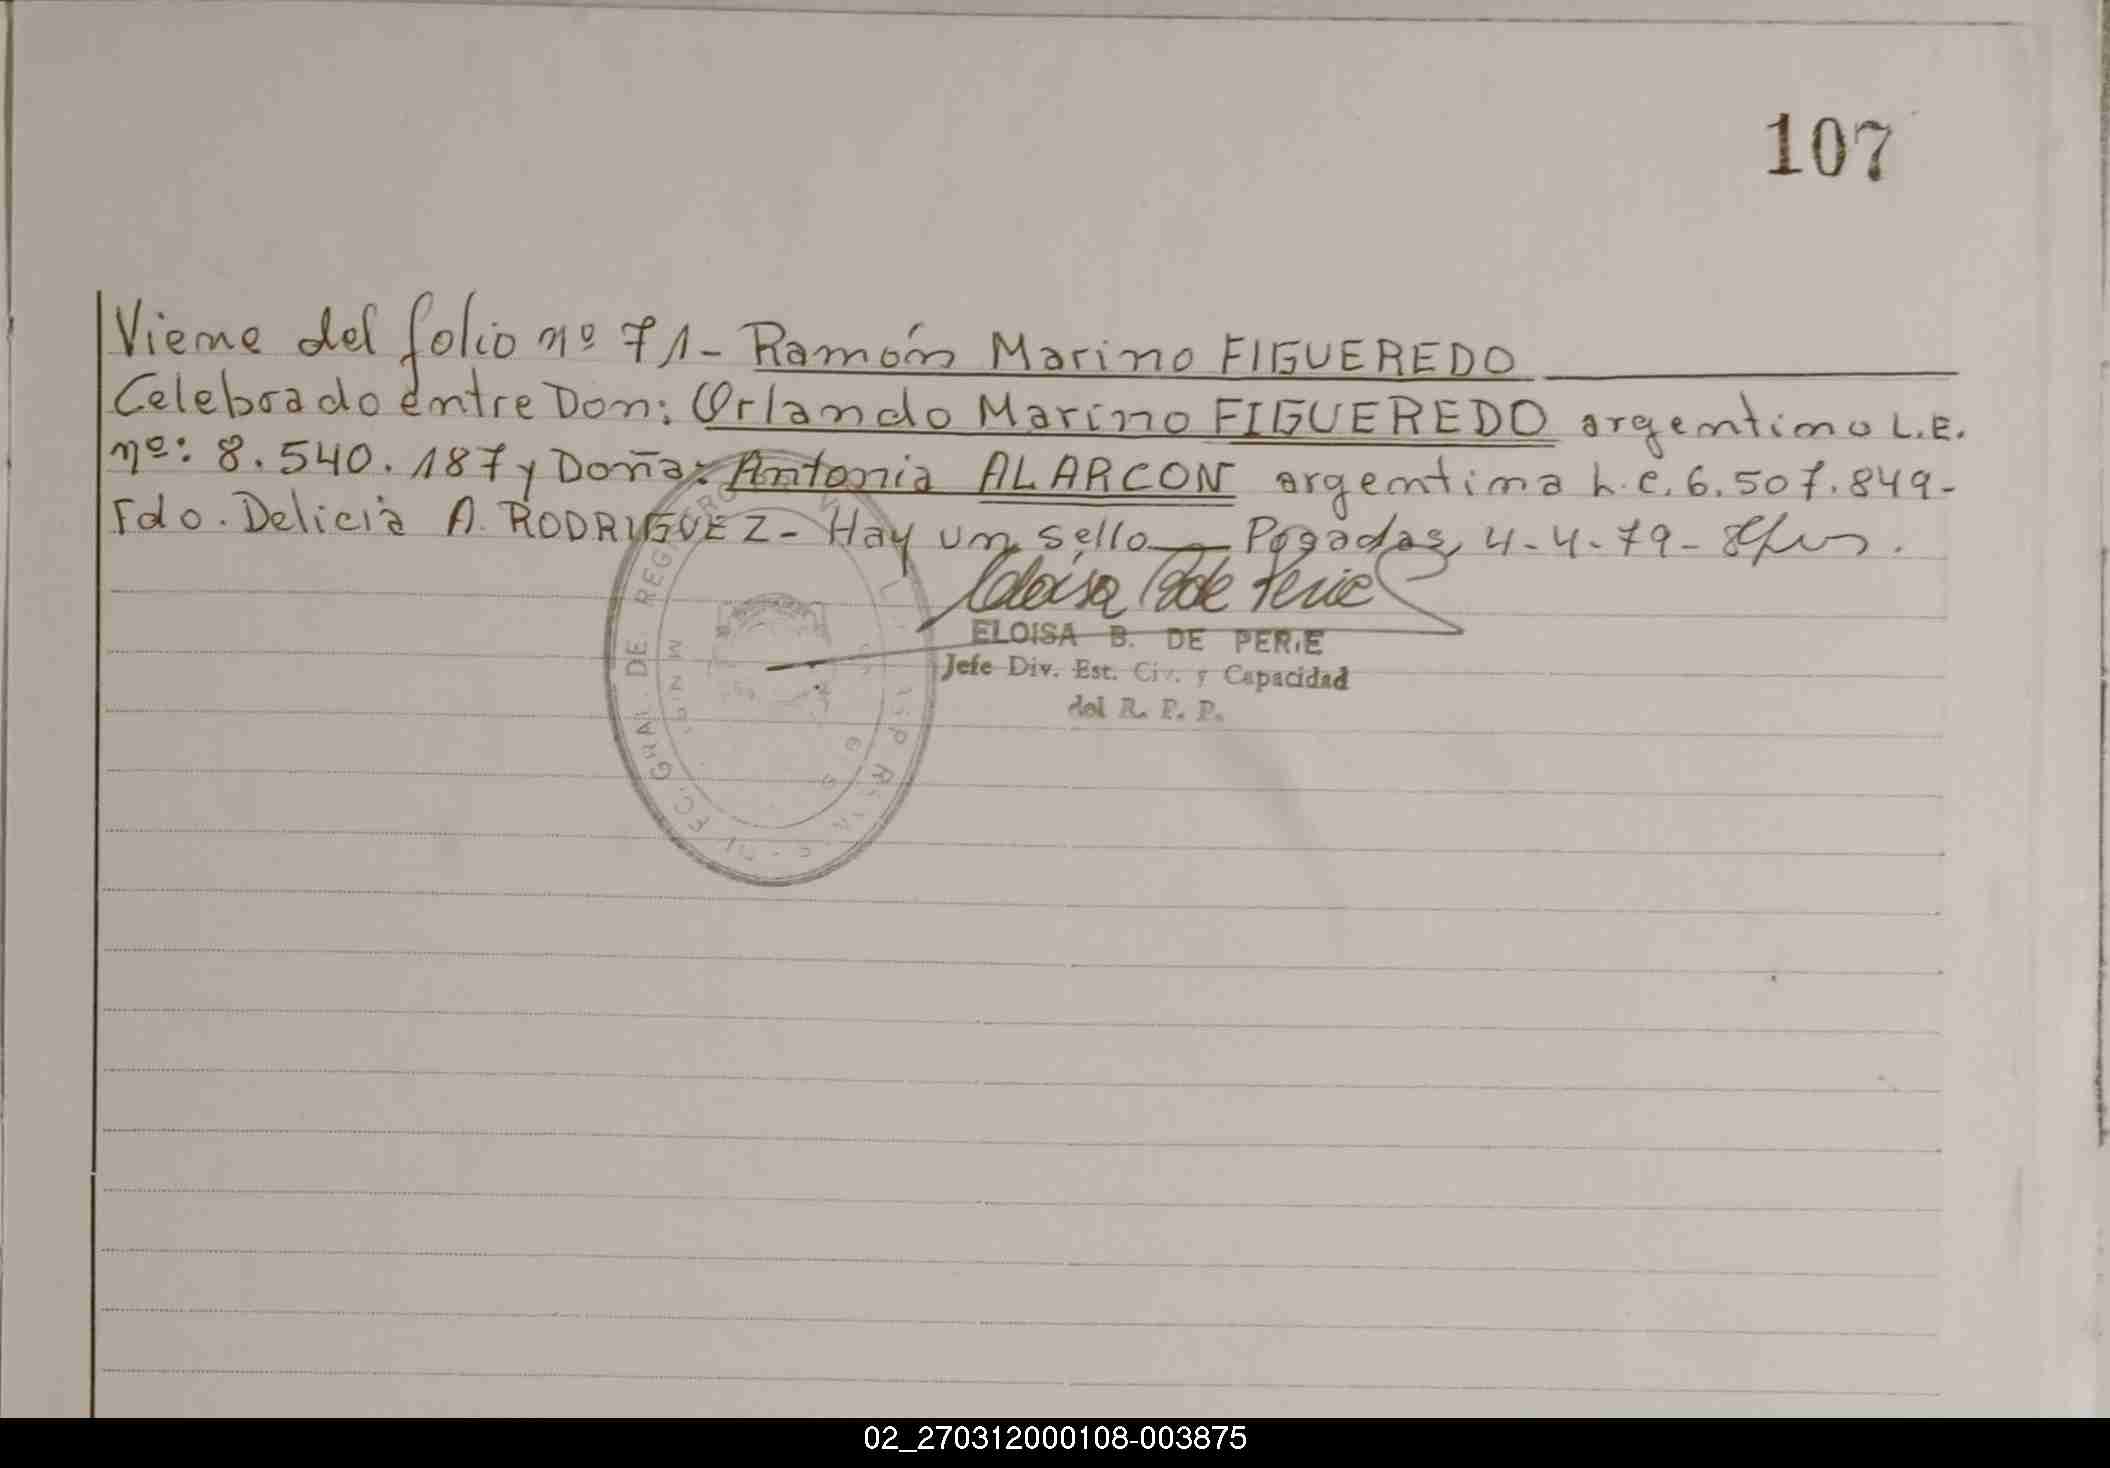 107
Viene del folio nº 71- Ramón Marino FIGUEREDO
Celebrado entre Don: Orlando Marino FIGUEREDO argentino L.E.
nº: 8.540.187 y Doña: Antonia ALARCON argentina L.C. 6.507.849-
Fdo. Delicia A. RODRIGUEZ- Hay un sello- Posadas, 4-4-79-
ELOISA B. DE PERIE
Jefe Div. Est. Civ. y Capacidad
del R. P. P.
02_270312000108-003875